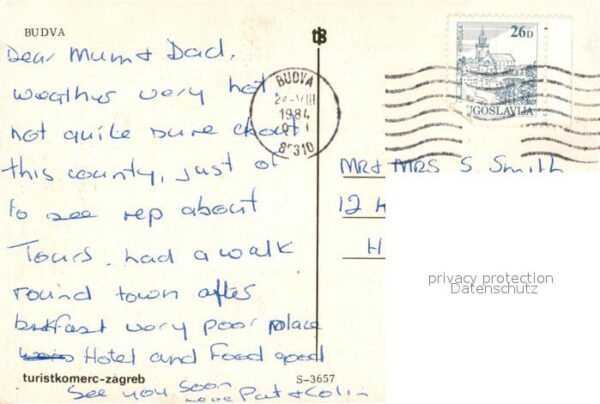 BUDVA
tB
26D
JUGOSLAVIJA
BUDVA
1984
85310
Dear Mum & Dad,
weather very hot
not quite sure about
this county, just of
to see rep about
Tours. had a walk
round town after
brkfast very poor place
Hotel and Food good
See you soon
love Pat & Colin
Mr & MRS S Smith
12 H
H
privacy protection
Datenschutz
turistkomerc-zagreb
S-3657